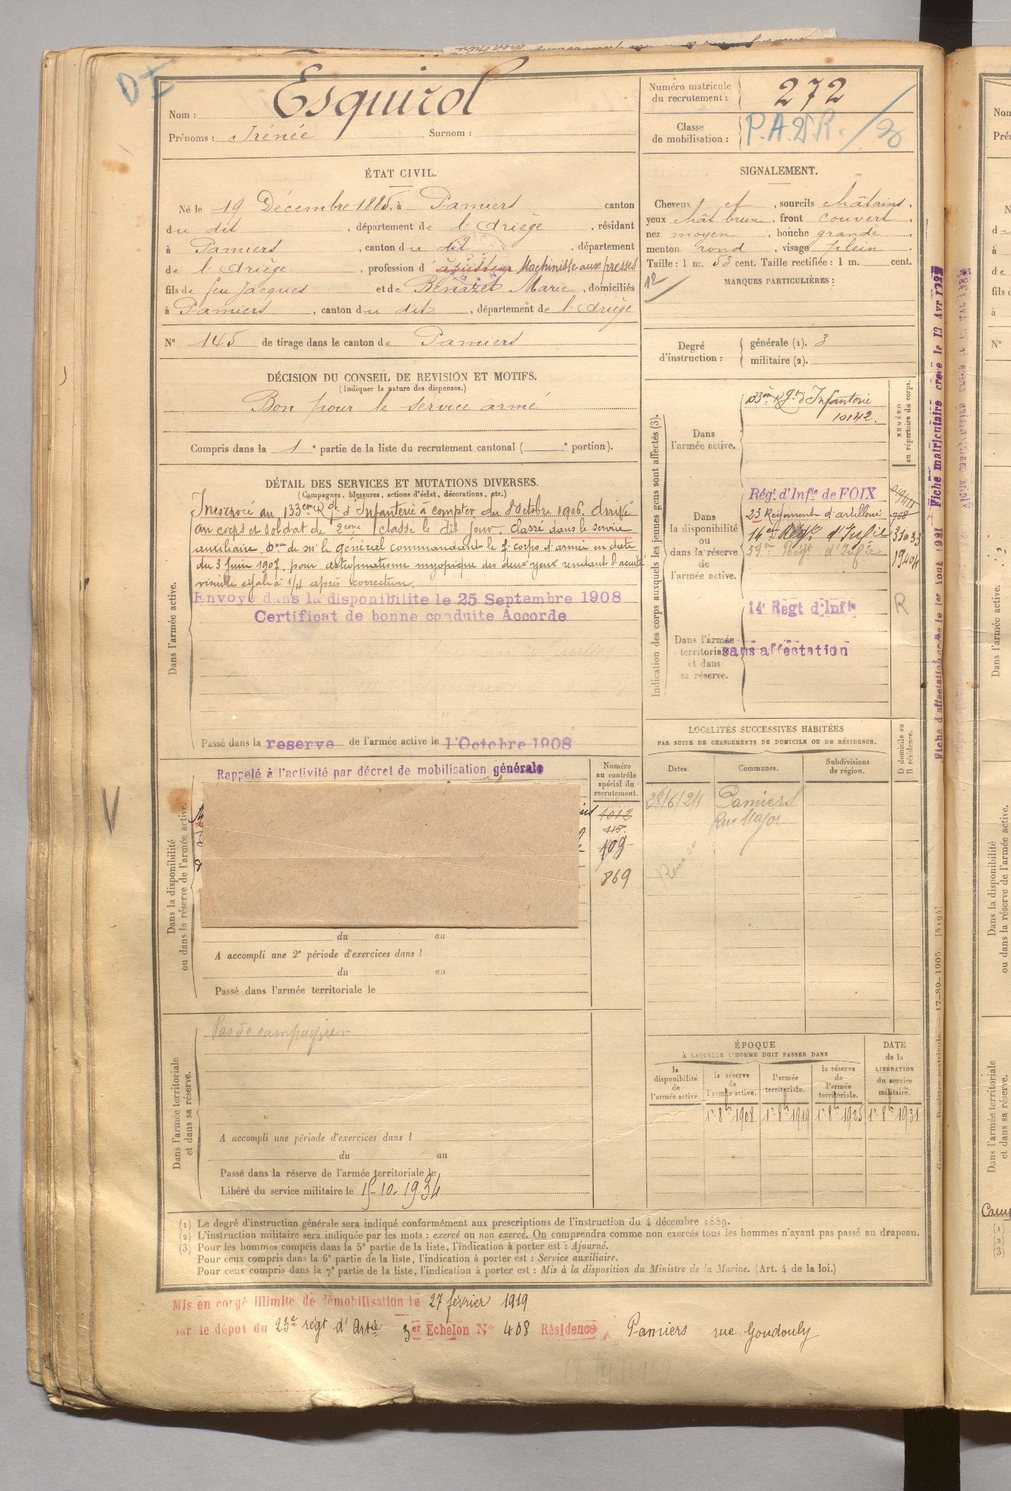 Nom : Esquirol
Prénoms : Irénée Surnom :
Numéro matricule
du recrutement : 272
Classe
de mobilisation : P.A.D.R.
ÉTAT CIVIL.
Né le 19 Décembre 1885, à Pamiers canton
du dit , département de l'Ariège , résidant
à Pamiers , canton du dit , département
de l'Ariège , profession d'ajusteur Machiniste aux presses
fils de feu Jacques et de Bénazet Marie , domiciliés
à Pamiers , canton du dit , département de l'Ariège
N° 145 de tirage dans le canton de Pamiers
SIGNALEMENT.
Cheveux et , sourcils châtains .
yeux chât brun , front couvert
nez moyen , bouche grande
menton rond , visage plein
Taille : 1 m. 53 cent. Taille rectifiée : 1 m. cent.
MARQUES PARTICULIÈRES :
Degré
d'instruction :
générale (1). 3
militaire (2).
DÉCISION DU CONSEIL DE REVISION ET MOTIFS.
(Indiquer la nature des dispenses).
Bon pour le service armé
Compris dans la 1e partie de la liste du recrutement cantonal ( e portion).
DÉTAIL DES SERVICES ET MUTATIONS DIVERSES.
(Campagnes, blessures, actions d'éclat, décorations, etc.)
Dans l'armée active.
Incorporé au 133eme Rgt. d'Infanterie à compter du 8 Octobre 1906. dirigé
au corps et soldat de 2eme classe le dit jour. Classé dans le service
auxiliaire, Don de Mr le Général commandant le 7e corps d'armée en date
du 3 Juin 1907, pour astigmatisme myopique des deux yeux rendant l'acuité
visuelle égale à 1/4 après correction.
Envoyé dans la disponibilité le 25 Septembre 1908
Certificat de bonne conduite Accorde
Passé dans la reserve de l'armée active le 1 Octobre 1908
Indication des corps auxquels les jeunes gens sont affectés (3).
NUMÉRO
au répertoire du corps.
Dans
l'armée active.
133eme Rgt d'Infanterie
10142.
Dans
la disponibilité
ou
dans la réserve
de
l'armée active.
Régt d'Infie de FOIX
23 Régiment d'artillerie
14eme Régt d'Infie
59eme Régt d'Infie
19404
14e Regt d'Infie
R
Dans l'armée
territoriale
et dans
sa réserve.
sans affectation
Dans la disponibilité
ou dans la réserve de l'armée active.
Rappelé à l'activité par décret de mobilisation générale
Numéro
au contrôle
spécial du
recrutement.
1012
418.
109
869
du au
A accompli une 2e période d'exercices dans l
du au
Passé dans l'armée territoriale le
LOCALITÉS SUCCESSIVES HABITÉES
PAR SUITE DE CHANGEMENTS DE DOMICILE OU DE RÉSIDENCE.
Dates. Communes. Subdivisions
de région.
D domicile ou
R résidence.
28/6/24 Pamiers
Rue Major
Dans l'armée territoriale
et dans sa réserve.
Pas de campagnes
A accompli une période d'exercices dans l
du au
Passé dans la réserve de l'armée territoriale le
Libéré du service militaire le 15-10-1934
ÉPOQUE
À LAQUELLE L'HOMME DOIT PASSER DANS
DATE
de la
LIBÉRATION
du service
militaire.
la
disponibilité
de
l'armée active.
la réserve
de
l'armée active.
l'armée
territoriale.
la réserve
de
l'armée
territoriale.
1er 8bre 1908 1er 8bre 1919 1er 8bre 1925 1er 8bre 1931
(1) Le degré d'instruction générale sera indiqué conformément aux prescriptions de l'instruction du 4 décembre 1889.
(2) L'instruction militaire sera indiquée par les mots : exercé ou non exercé. On comprendra comme non exercés tous les hommes n'ayant pas passé au drapeau.
(3) Pour les hommes compris dans la 5e partie de la liste, l'indication à porter est : Ajourné.
Pour ceux compris dans la 6e partie de la liste, l'indication à porter est : Service auxiliaire.
Pour ceux compris dans la 7e partie de la liste, l'indication à porter est : Mis à la disposition du Ministre de la Marine. (Art. 4 de la loi.)
Mis en congé illimité de démobilisation le 27 février 1919
par le dépot du 23e regt d'Artie 3er Echelon N° 408 Résidence, Pamiers rue Goudouly